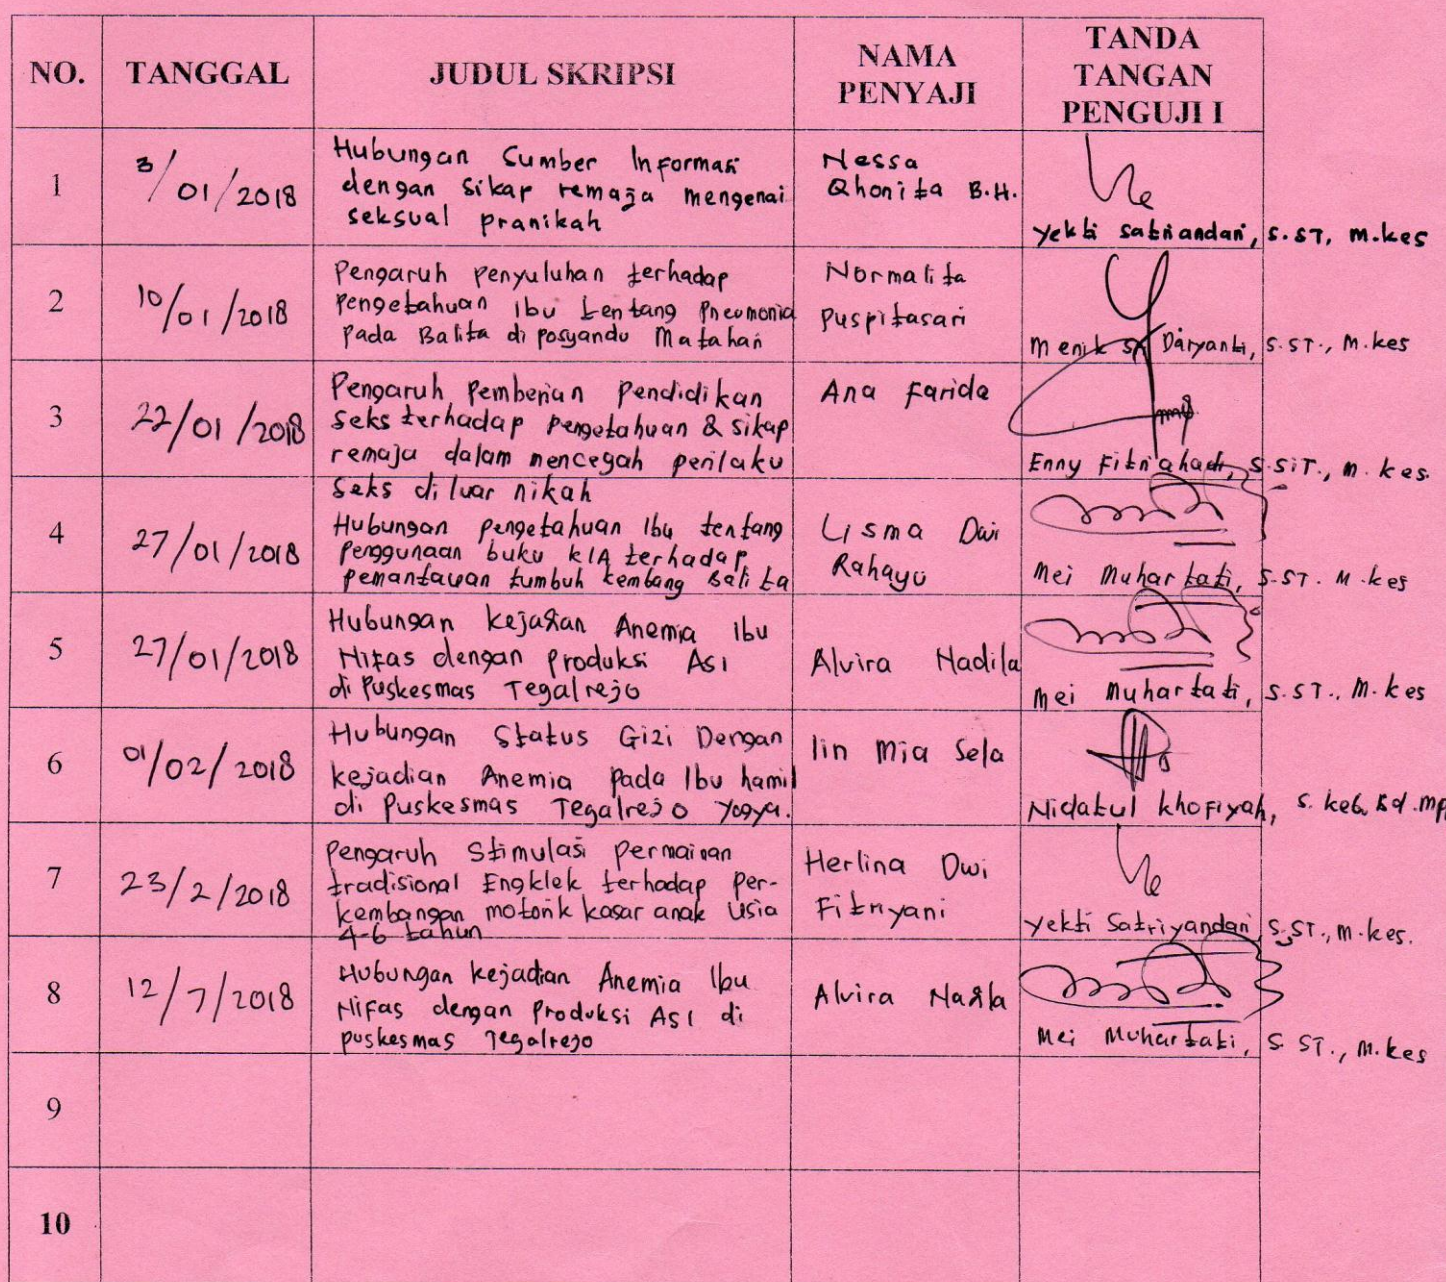 NO. TANGGAL JUDUL SKRIPSI NAMA PENYAJI TANDA TANGAN PENGUJI I
1 3/01/2018
Hubungan Sumber Informasi
dengan sikap remaja mengenai
seksual pranikah
Nessa
Qhonita B.H.
Yekti Satriandari, S.ST, M.kes
2 10/01/2018
Pengaruh penyuluhan terhadap
pengetahuan Ibu tentang Pneumonia
pada Balita di posyandu Matahari
Normalita
Puspitasari
Menik Sri Daryanti, S.ST., M.kes
3 22/01/2018
Pengaruh Pemberian Pendidikan
Seks terhadap pengetahuan & sikap
remaja dalam mencegah perilaku
Seks di luar nikah
Ana Farida
Enny Fitriahadi, S.SiT., M.kes.
4 27/01/2018
Hubungan pengetahuan Ibu tentang
penggunaan buku KIA terhadap
pemantauan tumbuh kembang Balita
Lisma Dwi
Rahayu
Mei Muhartati, S.ST. M.kes
5 27/01/2018
Hubungan kejadian Anemia Ibu
Nifas dengan produksi ASI
di Puskesmas Tegalrejo
Alvira Nadila
Mei Muhartati, S.ST., M.kes
6 01/02/2018
Hubungan Status Gizi Dengan
kejadian Anemia pada Ibu hamil
di Puskesmas Tegalrejo Yogya.
Iin Mia Sela
Nidatul Khofiyah, S.keb. Bd.
7 23/2/2018
Pengaruh Stimulasi permainan
tradisional Engklek terhadap per-
kembangan motorik kasar anak Usia
4-6 tahun
Herlina Dwi
Fitriyani
Yekti Satriyandari S.ST., M.kes.
8 12/7/2018
Hubungan kejadian Anemia Ibu
Nifas dengan Produksi ASI di
puskesmas Tegalrejo
Alvira Nadila
Mei Muhartati, S.ST., M.kes
9
10